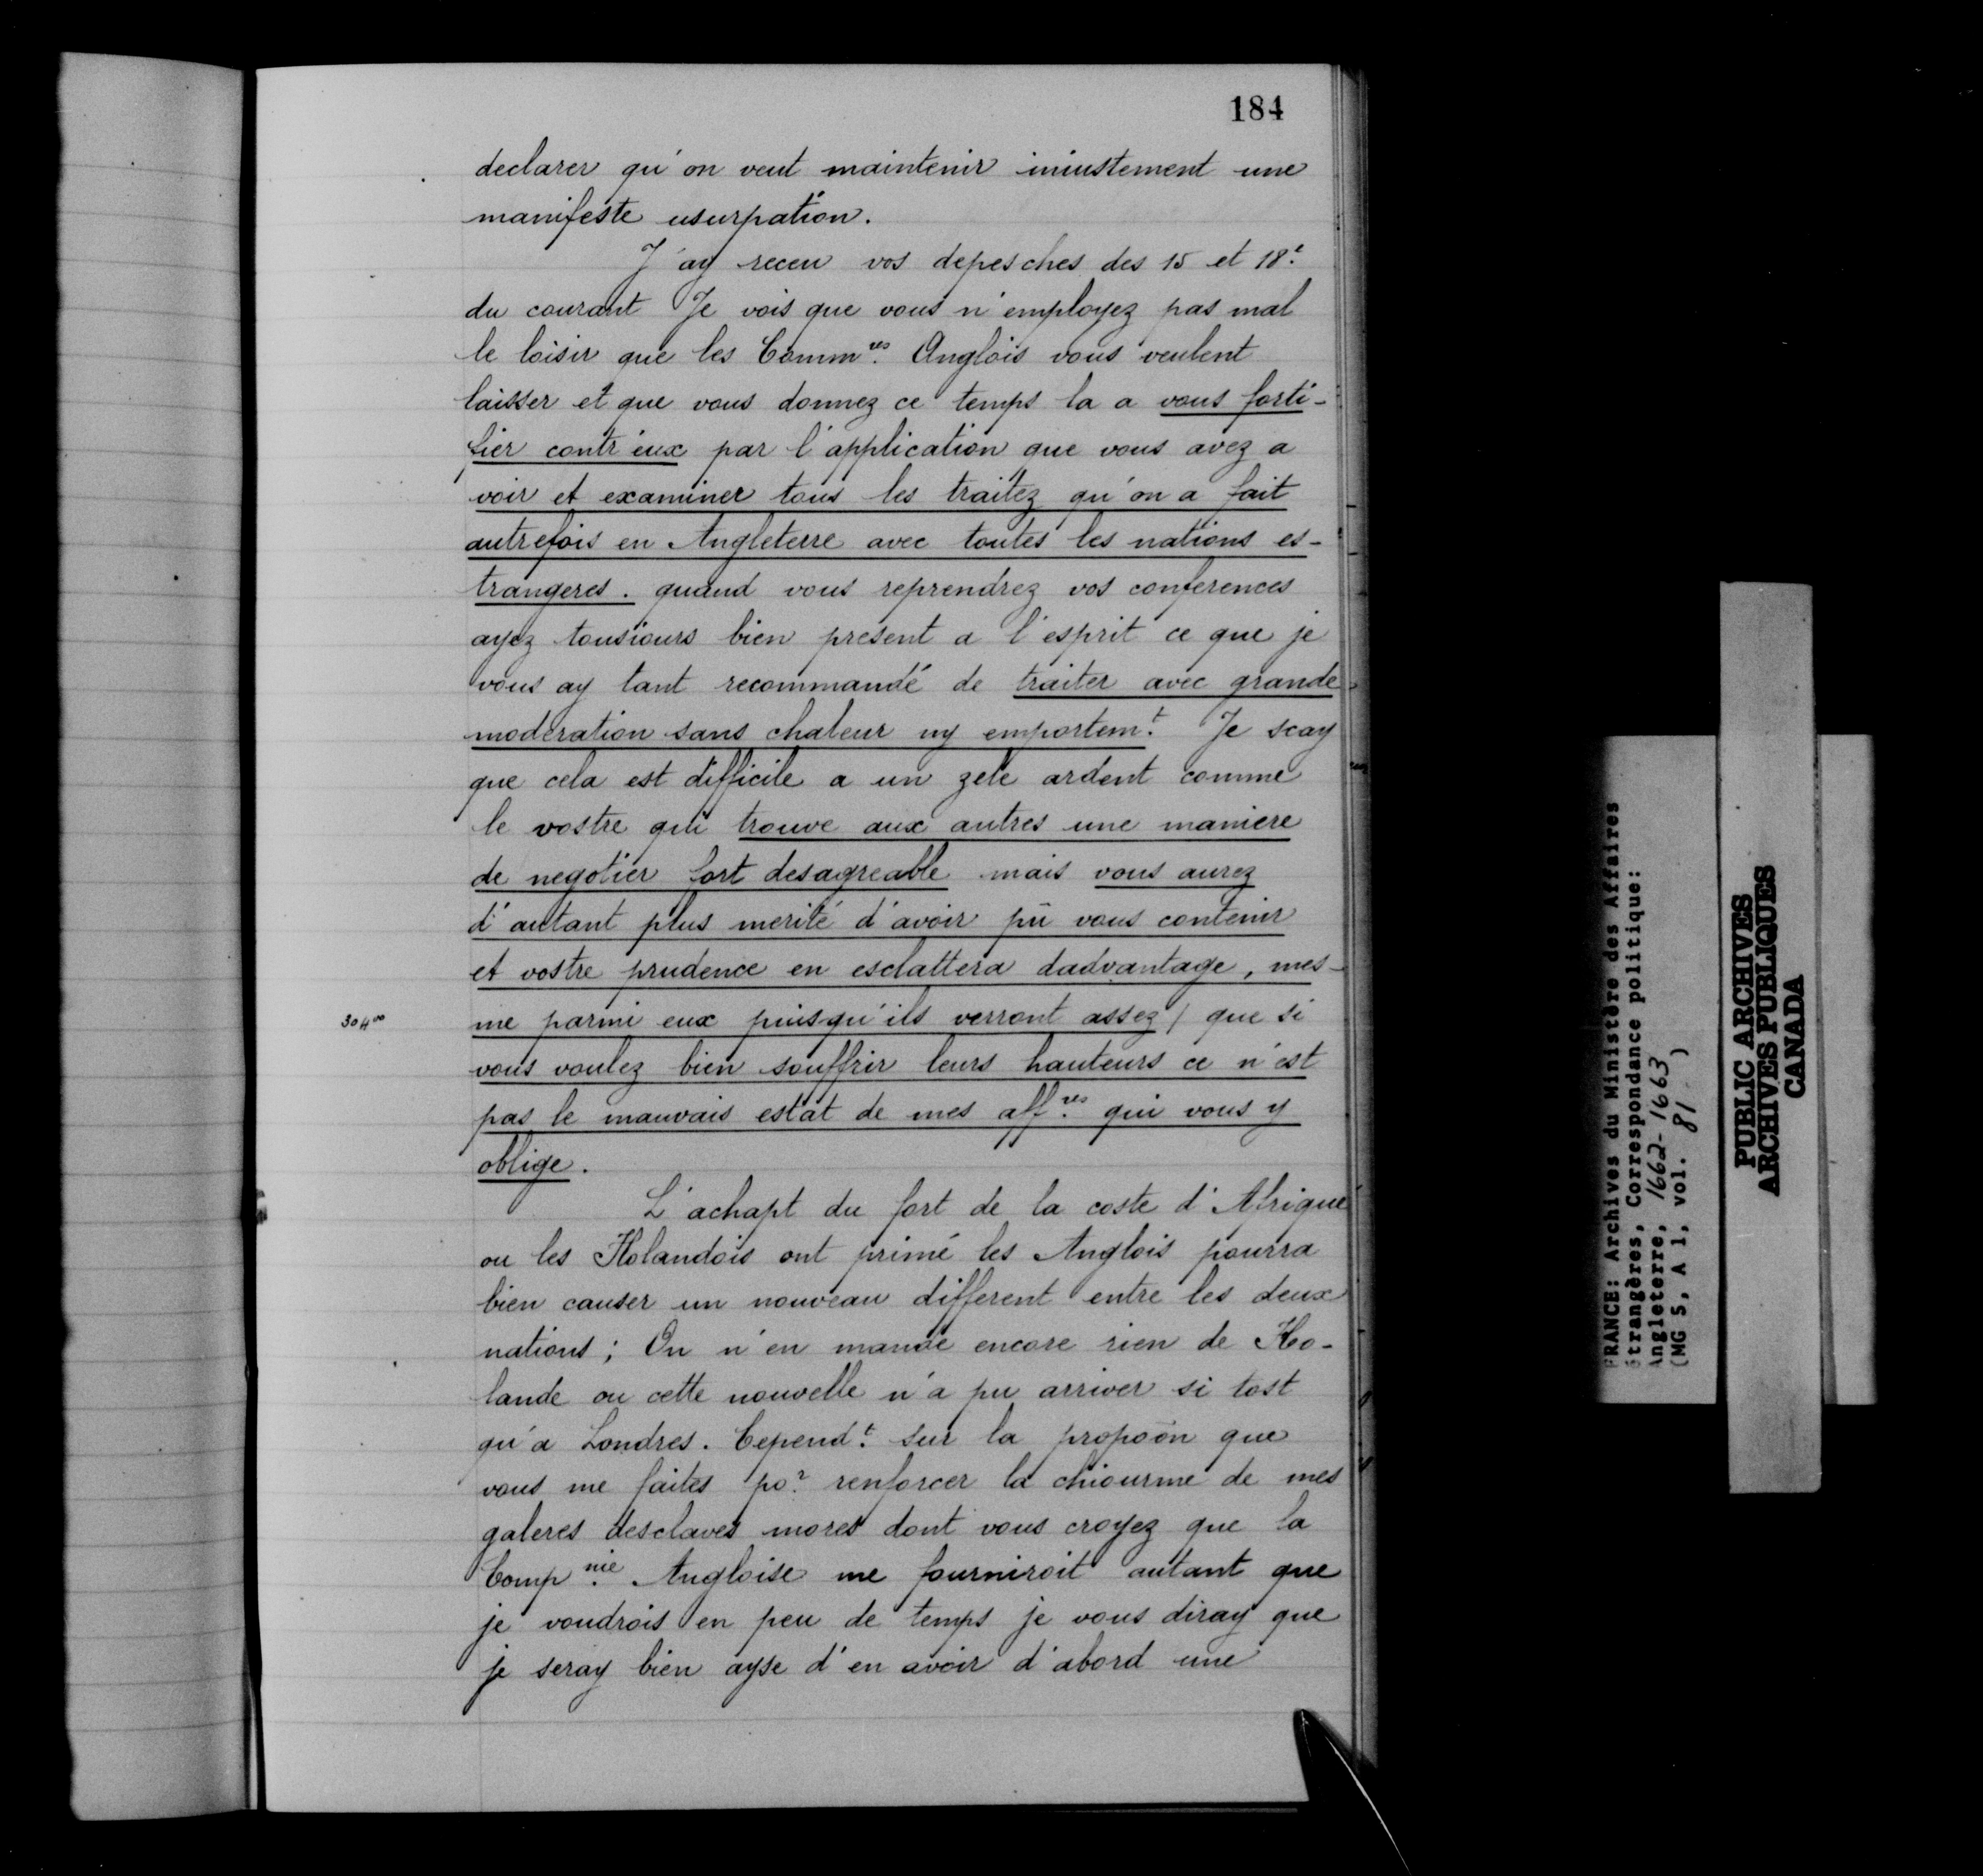 184
declarer qu'on veut maintenir iniustement une
manifeste usurpation.
J'ay receu vos depesches des 15 et 18e
du courant Je vois que vous n'employez pas mal
le loisir que les Commres Anglois vous veulent
laisser et que vous donnez ce temps la a vous forti-
fier contr'eux par l'application que vous avez a
voir et examiner tous les traitez qu'on a fait
autrefois en Angleterre avec toutes les nations es-
trangeres. quand vous reprendrez vos conferences
ayez tousiours bien present a l'esprit ce que je
vous ay tant recommandé de traiter avec grande
moderation sans chaleur ny emportemt. Je scay
que cela est difficile a un zele ardent comme
le vostre qui trouve aux autres une maniere
de negotier fort desagreable mais vous aurez
d'autant plus merité d'avoir pû vous contenir
et vostre prudence en esclattera dadvantage, mes-
304vo
me parmi eux puisqu'ils verront assez / que si
vous voulez bien souffrir leurs hauteurs ce n'est
pas le mauvais estat de mes affres qui vous y
oblige.
L'achapt du fort de la coste d'Afrique
ou les Holandois ont primé les Anglois pourra
bien causer un nouveau different entre les deux
nations; On n'en mande encore rien de Ho-
lande ou cette nouvelle n'a pu arriver si tost
qu'a Londres. Cependt. sur la propoon que
vous me faites por renforcer la chiourme de mes
galeres desclaves mores dont vous croyez que la
Compnie Angloise me fourniroit autant que
je voudrois en peu de temps je vous diray que
je seray bien ayse d'en avoir d'abord une
FRANCE: Archives du Ministère des Affaires
étrangères, Correspondance politique:
Angleterre, 1662-1663
(MG 5, A 1, vol. 81 )
PUBLIC ARCHIVES
ARCHIVES PUBLIQUES
CANADA